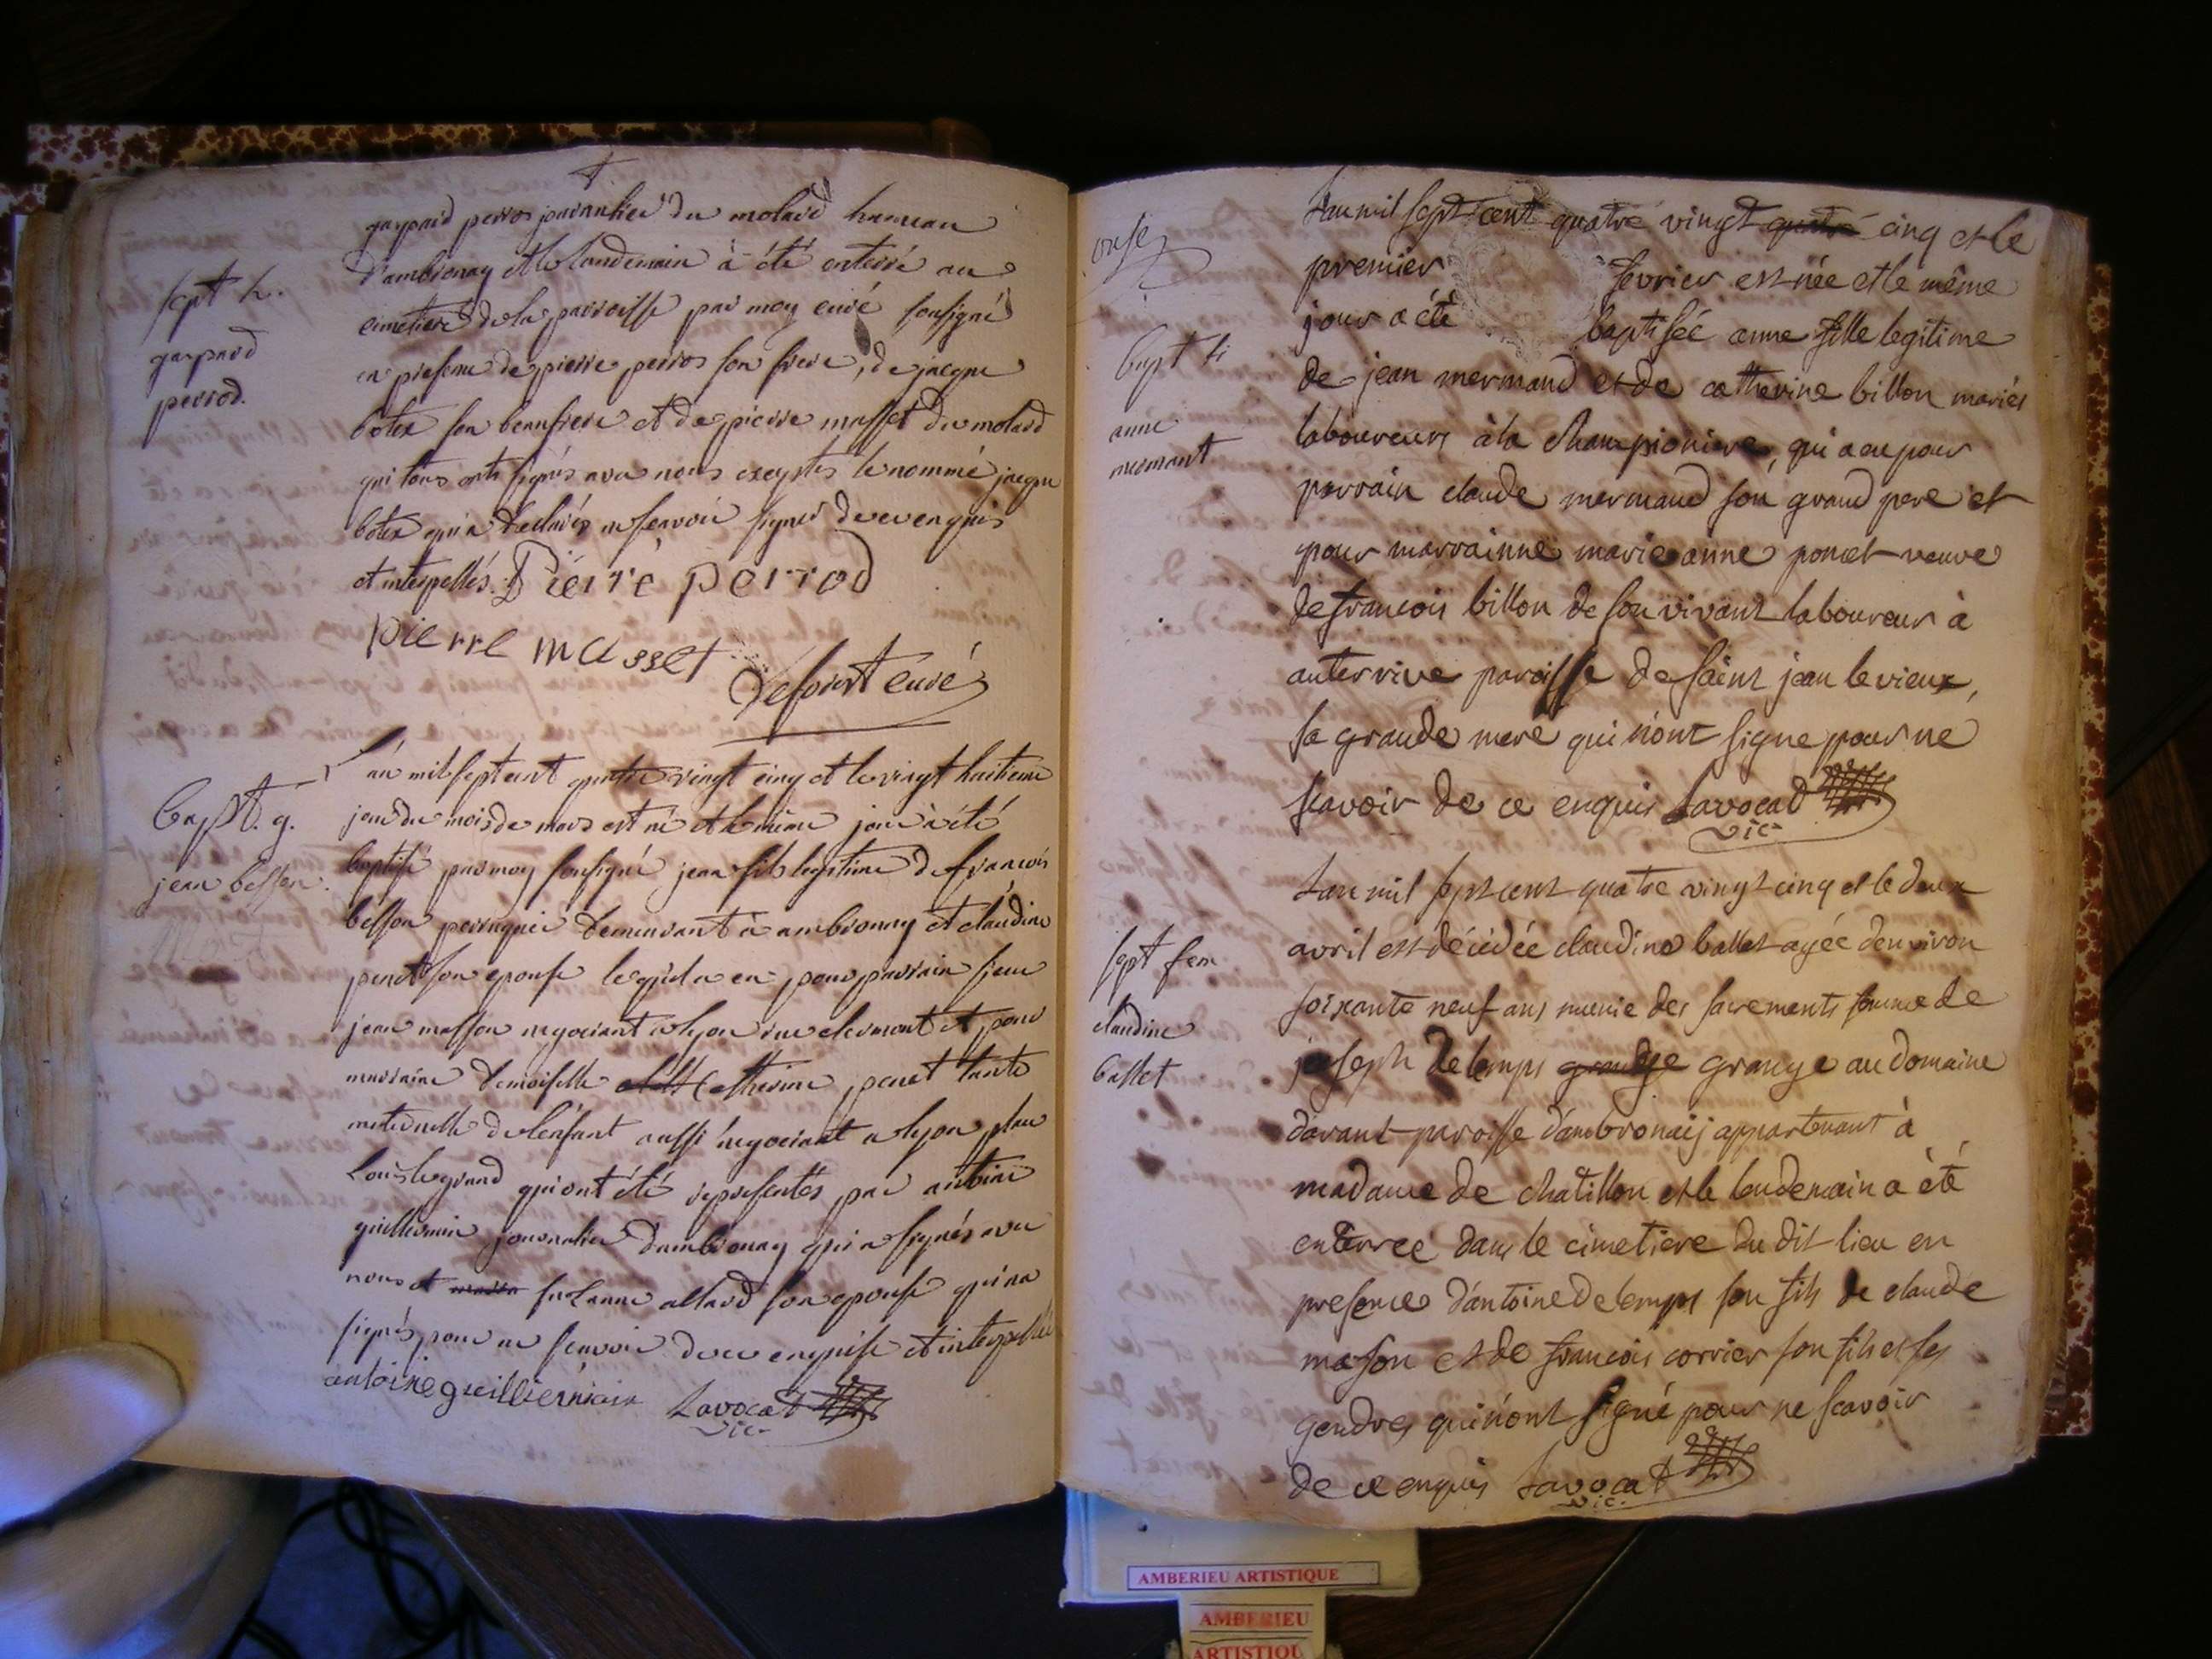 gaspard perrod journalier du molard hameau
d'ambronay et le landemain à été enterré au
cimetiere de la parroisse par moy curé sousigné
en presence de pierre perrod son frere, de jacque
botex son beaufrere et de pierre masset du molard
qui tous onts signés avec nous exeptés le nommé jacque
botex qui a declarés ne scavoir signer de ce enquis
et interpellés. Pierre perrod
pierre masset
curé
sept h.
gaspard
perrod.
L'an mil sept cent quatre vingt cinq et le vingt huitieme
jour du mois de mars est né et le meme jour à été
baptisé par moy sousigné jean fils legitime de francois
besson perruquier demeurant à ambronay et claudine
penet son epouse lequel a eu pour parrain sieur
jean masson negociant a lyon rue clermont et pour
marraine demoiselle Catherine penet tante
maternelle de l'enfant aussi negociant a lyon place
Louis legrand qui ont été representes par antoine
guillermin journalier d'ambronay qui a signés avec
nous et suzanne allard son epouse qui n'a
signés pour ne scavoir de ce enquise et interpellée
antoine guilliermin Lavocat
vic.
Bapt. g.
jean besson.
onse
L'an mil sept cent quatre vingt quatre cinq et le
premier fevrier est née et le même
jour a été baptisée anne fille legitime
de jean mermand et de catherine billon mariés
laboureurs à la championiere, qui a eu pour
parrain claude mermand son grand pere et
pour marrainne marie anne poncet veuve
de francois billon de son vivant laboureur à
auterrive paroisse de saint jean le vieux,
sa grande mere qui n'ont signe pour ne
scavoir de ce enquis Lavocat
vic.
bapt fi
anne
mermant
L'an mil sept cent quatre vingt cinq et le deux
avril est décédée claudine ballet agée d'environ
soixante neuf ans munie des sacrements femme de
joseph Delemps grange grange au domaine
davant paroisse d'ambronaij appartenant à
madame de chatillon et le lendemain a été
enterreé dans le cimetiere du dit lieu en
presence d'antoine Delemps son fils de claude
mason et de francois corrier son fils et ses
gendres qui n'ont signé pour ne scavoir
de ce enquis Lavocat
vic.
sept fem
claudine
ballet
AMBERIEU ARTISTIQUE
AMBERIEU